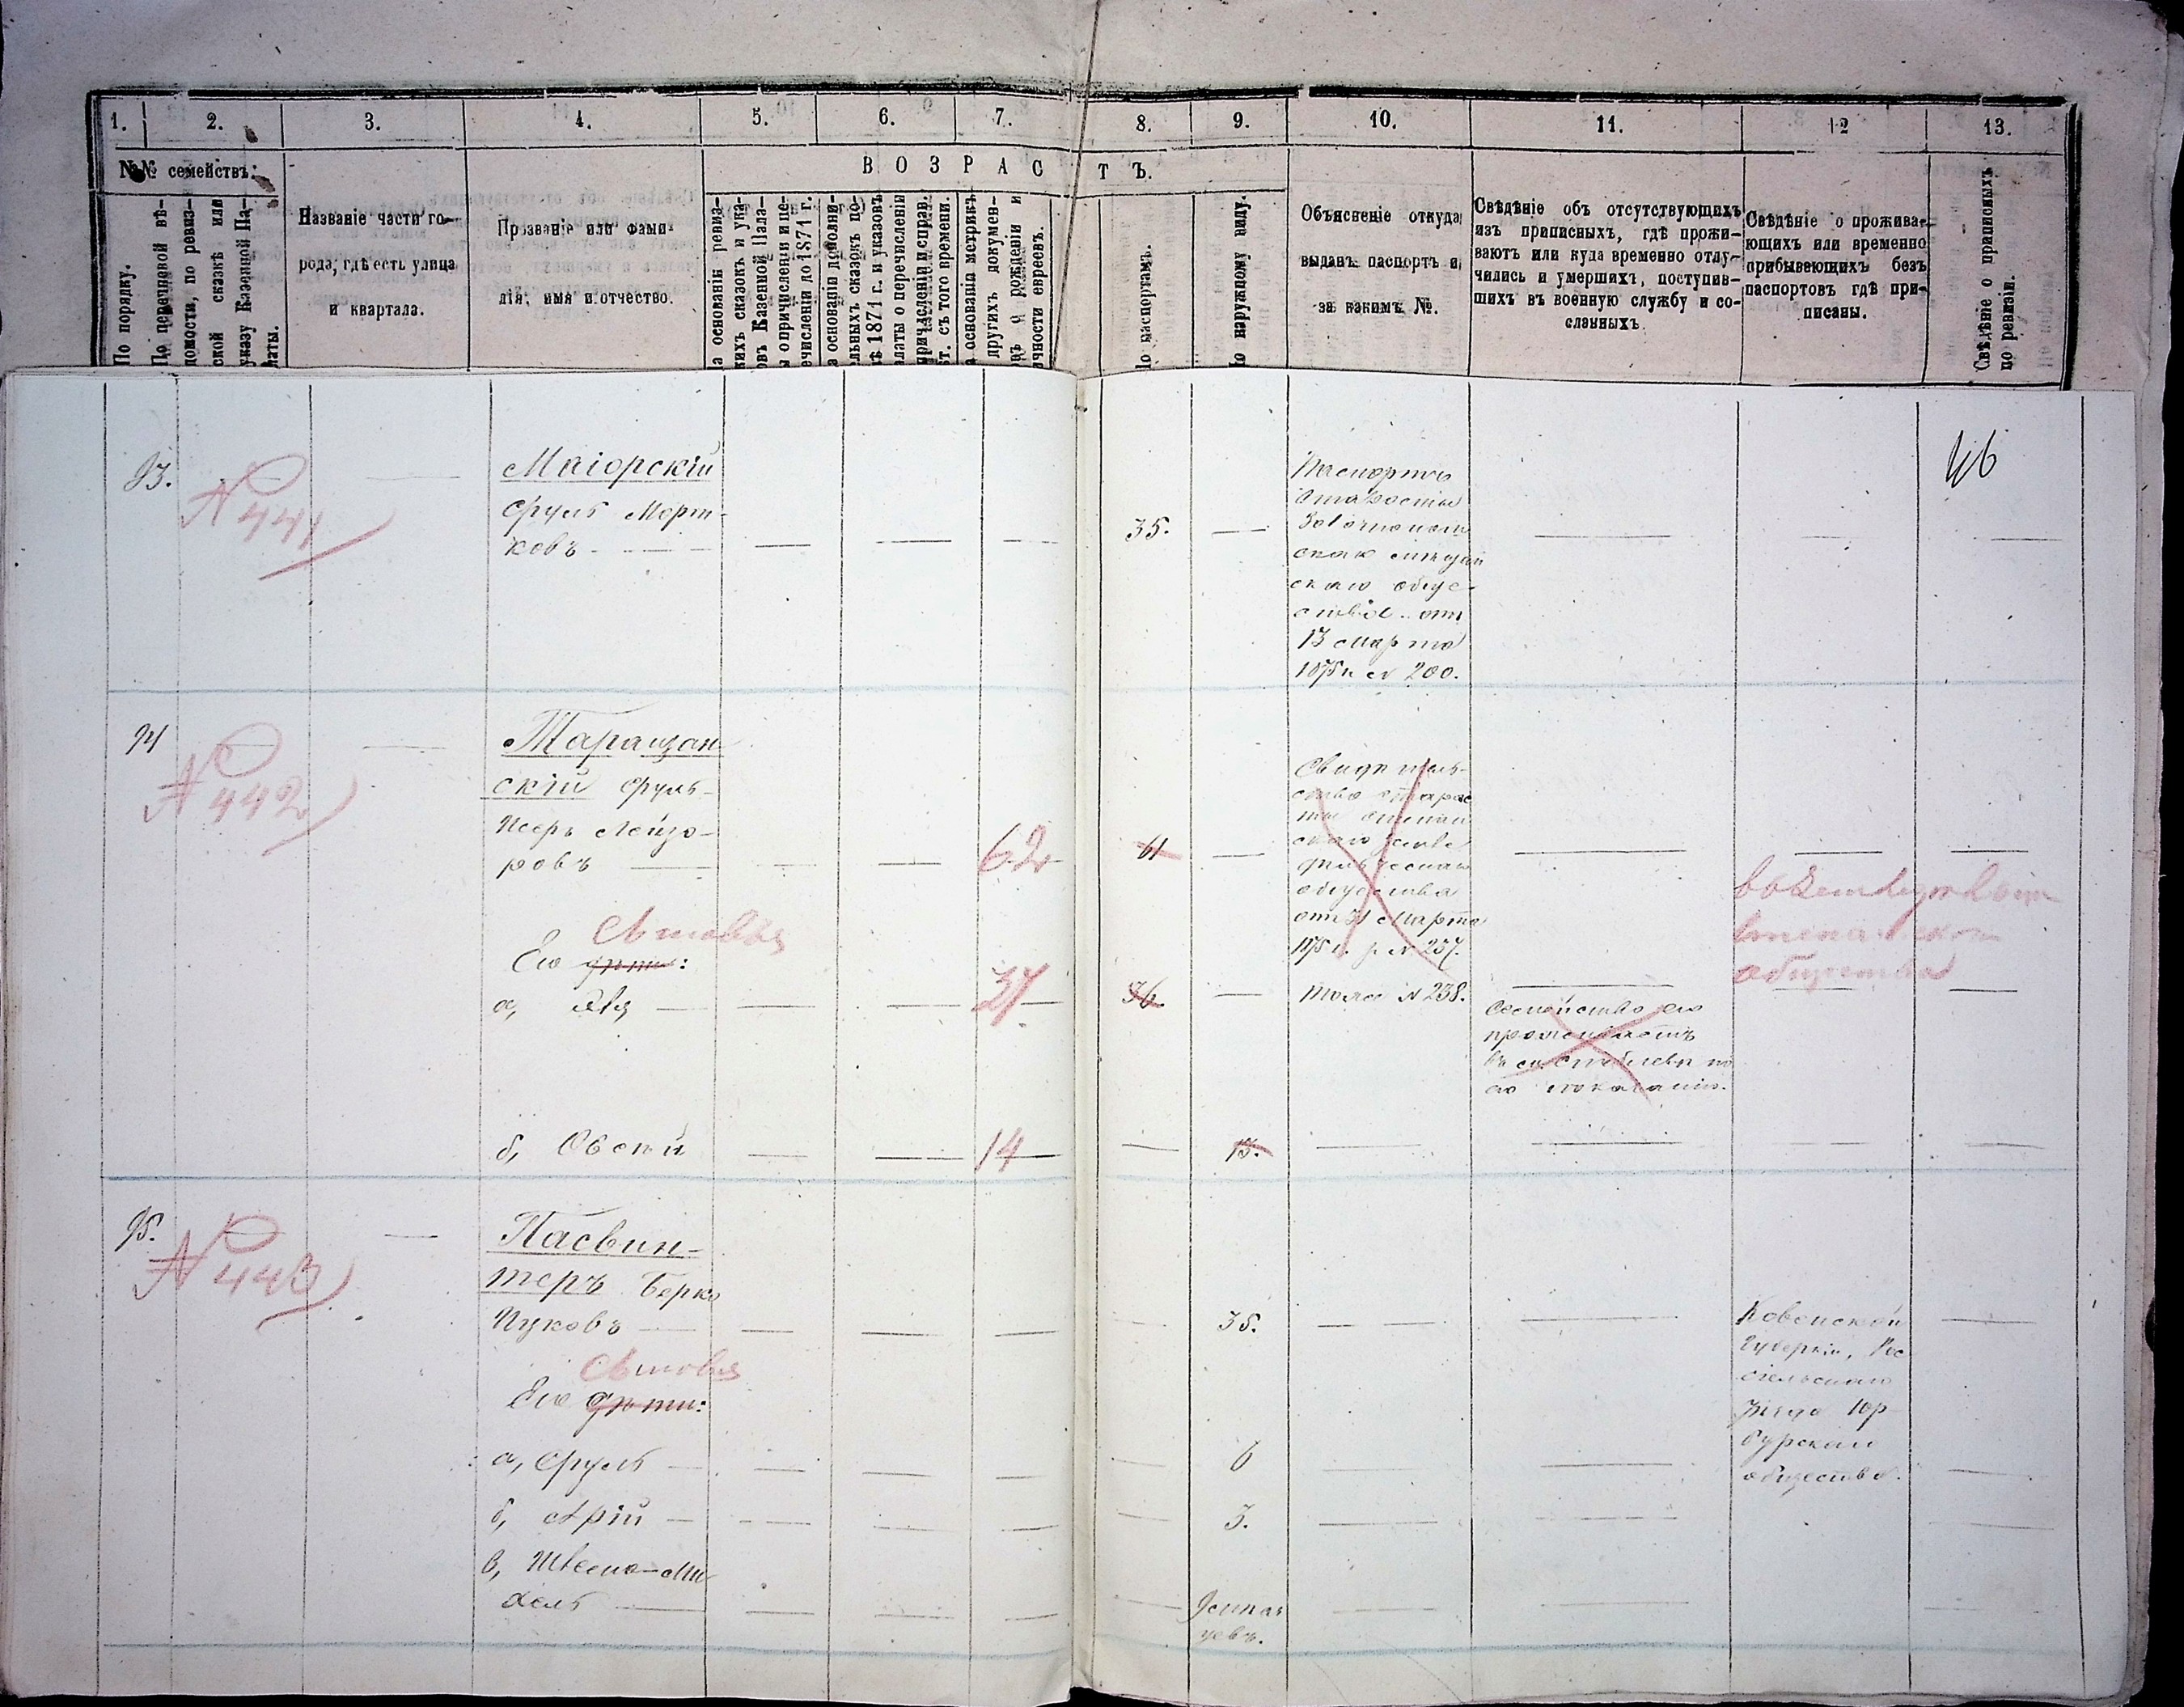 1. 2. 3. 4. 5. 6. 7. 8. 9. 10. 11. 12 13.
№№ семействъ.
По порядку.
По перечневой вѣ-
домости, по ревиз-
ской сказкѣ или
указу Казенной Па-
латы.
Названіе части го-
рода, гдѣ есть улица
и квартала.
Прозваніе или фами-
лія, имя и отчество.
ВОЗРАСТЪ.
а основаніи ревиз-
кихъ сказокъ и ука-
овъ Казенной Пала-
ы о причисленіи и пе-
ечисленіи до 1871 г.
а основаніи дополни-
ельныхъ сказокъ по-
лѣ 1871 г. и указовъ
алаты о перечисленіи
причисленіи и справ.
ѣт. съ того времени.
а основаніи метрикъ
другихъ докумен-
овъ о рожденіи и
ичности евреевъ.
По паспортамъ.
По наружному виду.
Объясненіе откуда
выданъ паспортъ и
за какимъ №.
Свѣдѣніе объ отсутствующихъ
изъ приписныхъ, гдѣ прожи-
ваютъ или куда временно отлу-
чились и умершихъ, поступив-
шихъ въ военную службу и со-
сланныхъ.
Свѣдѣніе о прожива-
ющихъ или временно
прибывающихъ безъ
паспортовъ гдѣ при-
писаны.
Свѣдѣніе о приписныхъ
по ревизіи.
46
93.
№ 441
Маіорскій
Сруль Морт-
ковъ
35.
Паспортъ
Старосты
мѣщан
скаго обще-
ства отъ
13 Марта
1875 г. № 200.
94
№ 442
Таращан
скій Сруль-
Исеръ Лейзо-
ровъ
62
61
Свидѣтель-
ство Старос
ты
скаго земле
дѣльческаго
общества
отъ 31 Марта
1875 г. № 237.
Сыновья
Его дѣти:
а,
37
36.
тоже № 238.
Семейство его
проживаетъ
въ с. Стеблевѣ по
его показанію.
общества
б, Овсѣй
14
13.
95.
№ 443
Пасвин-
теръ Берко
Ицковъ
35.
Ковенской
Губерніи, Рос
сіенскаго
уѣзда Юр-
бургскаго
общества.
Сыновья
Его дѣти:
а, Сруль
6
б, Арій
3.
в, Шлема-Ми
хель
9 мѣся
цевъ.